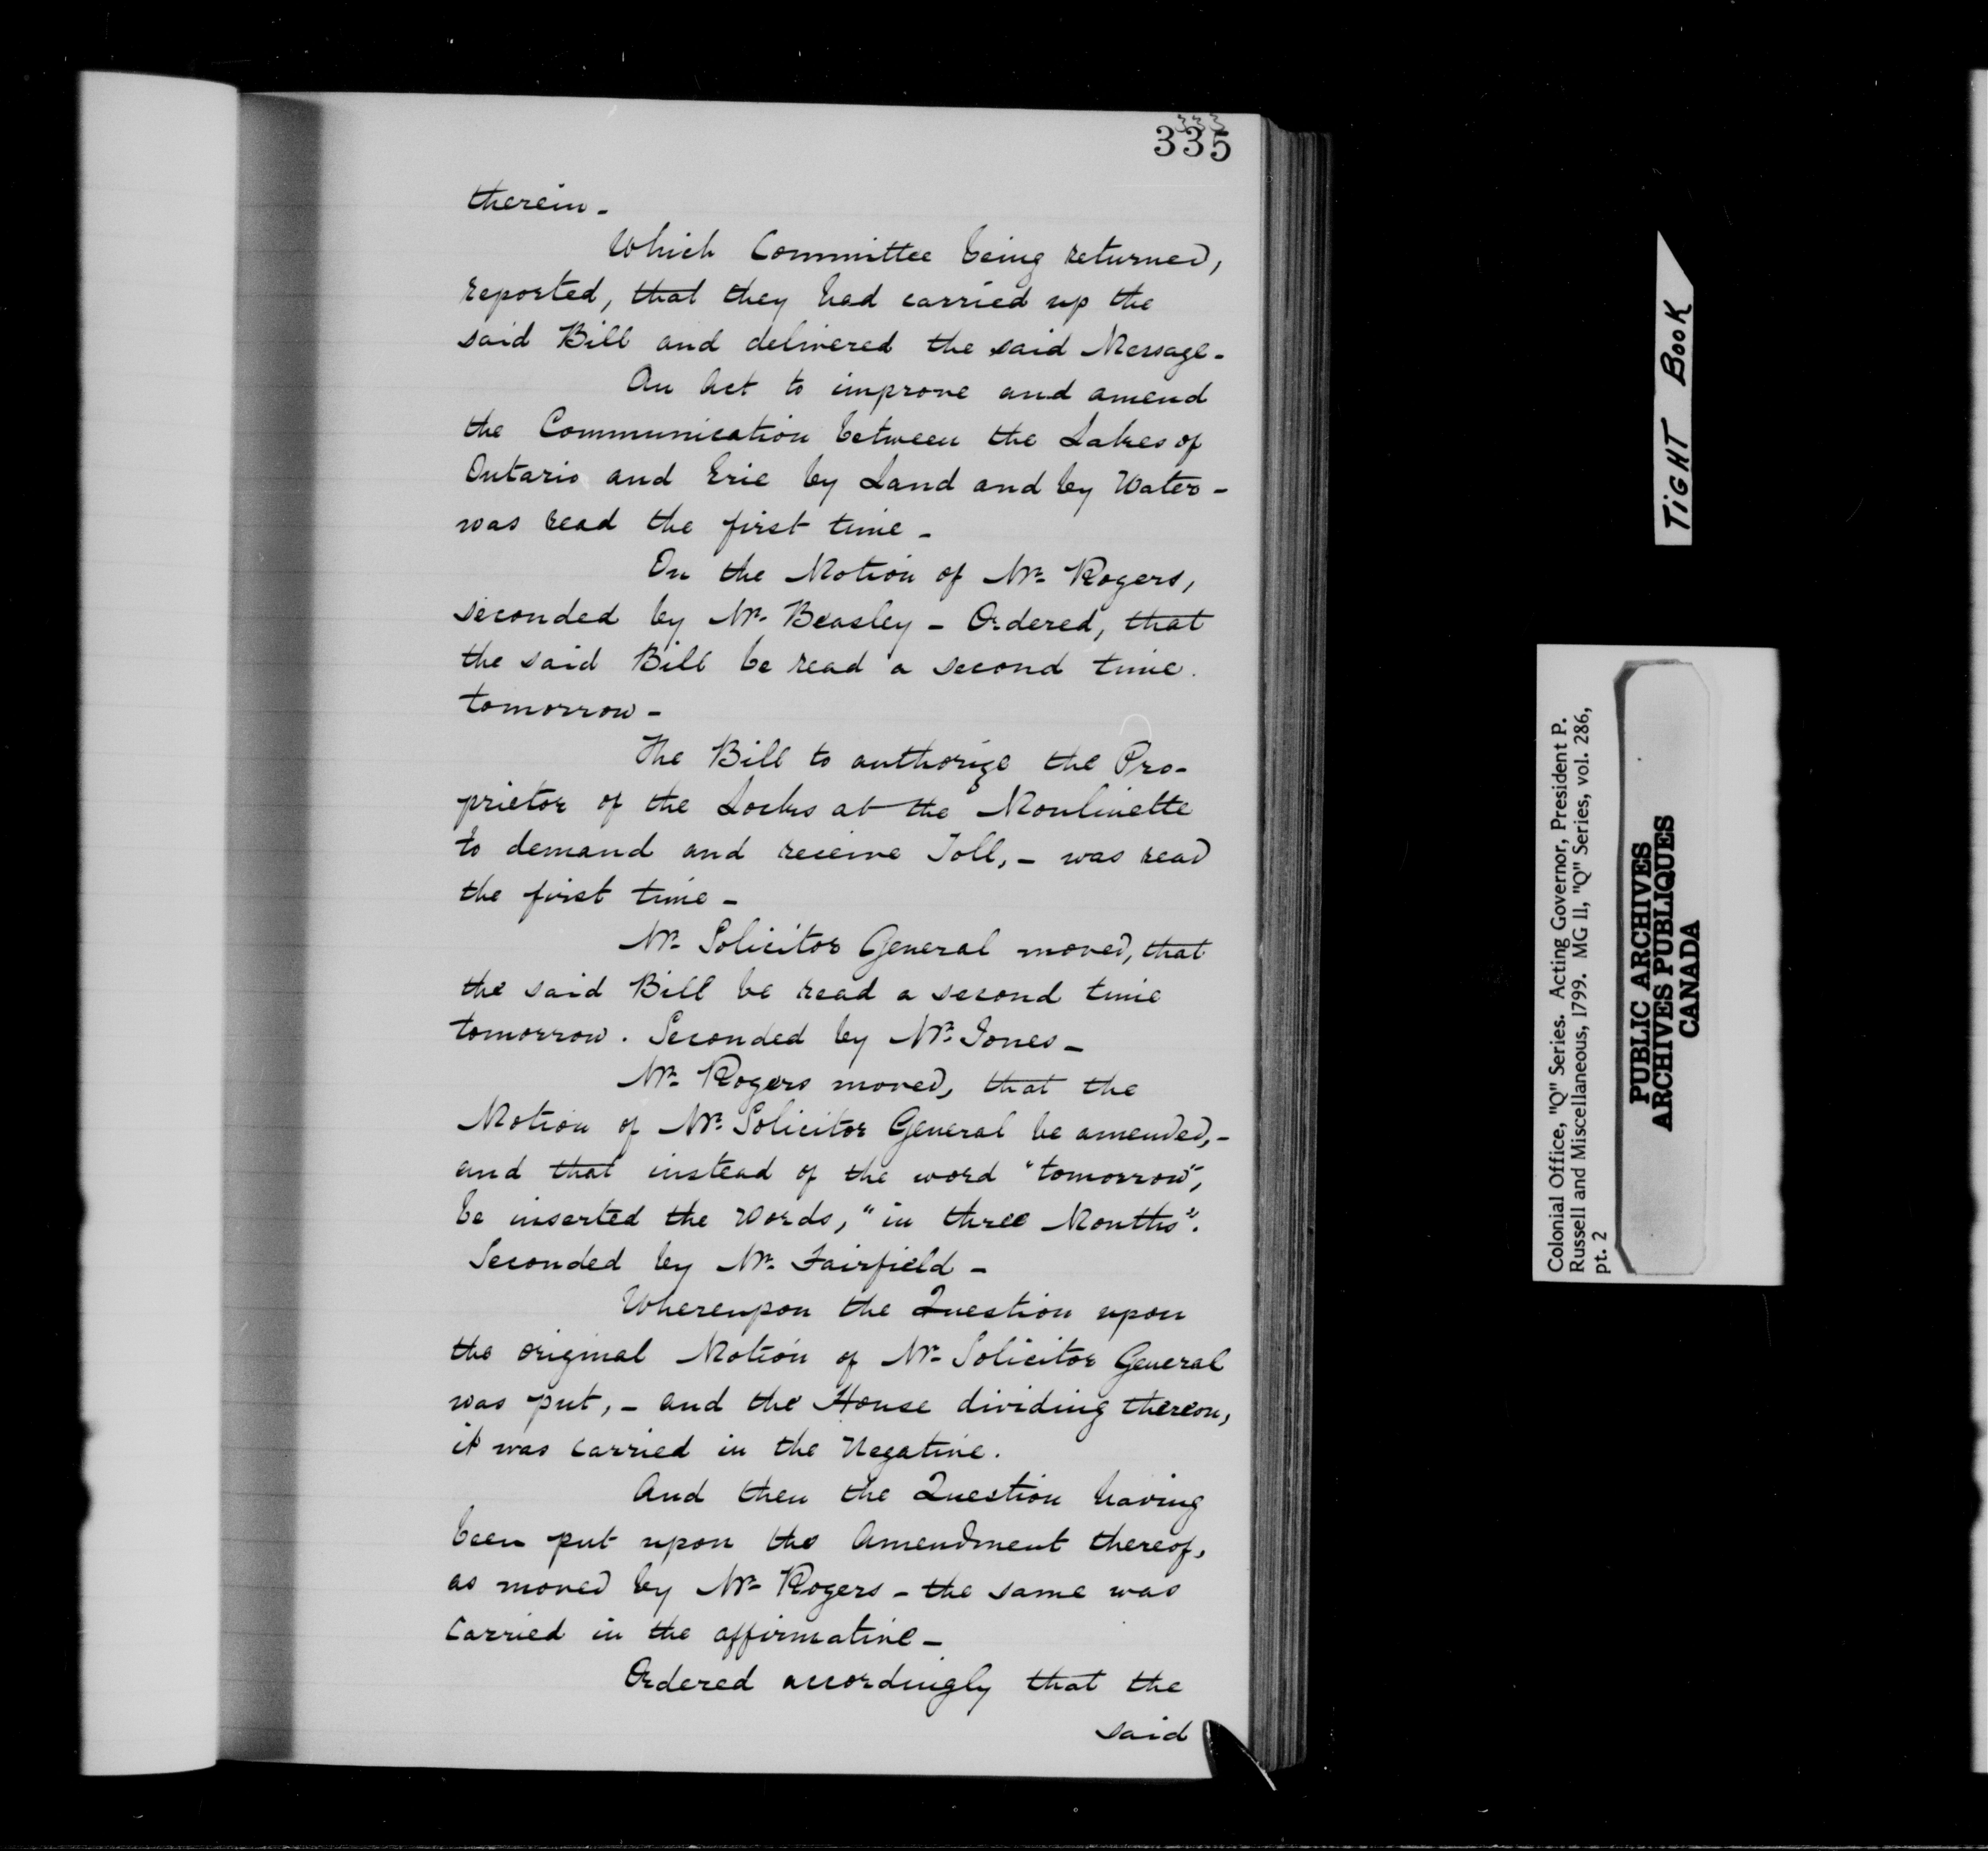 333
335
therein -
Which Committee being returned,
reported, that they had carried up the
said Bill and delivered the said Message -
An Act to improve and amend
the Communication between the Lakes of
Ontario and Erie by Land and by Water -
was read the first time -
On the Motion of Mr. Rogers,
seconded by Mr. Beasley - Ordered, that
the said Bill be read a second time.
tomorrow -
The Bill to authorize the Pro-
prietor of the Locks at the Moulinette
to demand and receive Toll, - was read
the first time -
Mr. Solicitor General moved, that
the said Bill be read a second time
tomorrow. Seconded by Mr. Jones -
Mr. Rogers moved, that the
Motion of Mr. Solicitor General be amended, -
and that instead of the word "tomorrow",
be inserted the Words, "in three Months".
Seconded by Mr. Fairfield -
Whereupon the Question upon
the original Motion of Mr. Solicitor General
was put, - and the House dividing thereon,
it was carried in the Negative.
And then the Question having
been put upon the Amendment thereof,
as moved by Mr. Rogers - the same was
carried in the affirmative -
Ordered accordingly that the
said
TiGHT BOOK
Colonial Office, "Q" Series. Acting Governor, President P.
Russell and Miscellaneous, 1799. MG 11, "Q" Series, vol. 286,
pt. 2
PUBLIC ARCHIVES
ARCHIVES PUBLIQUES
CANADA